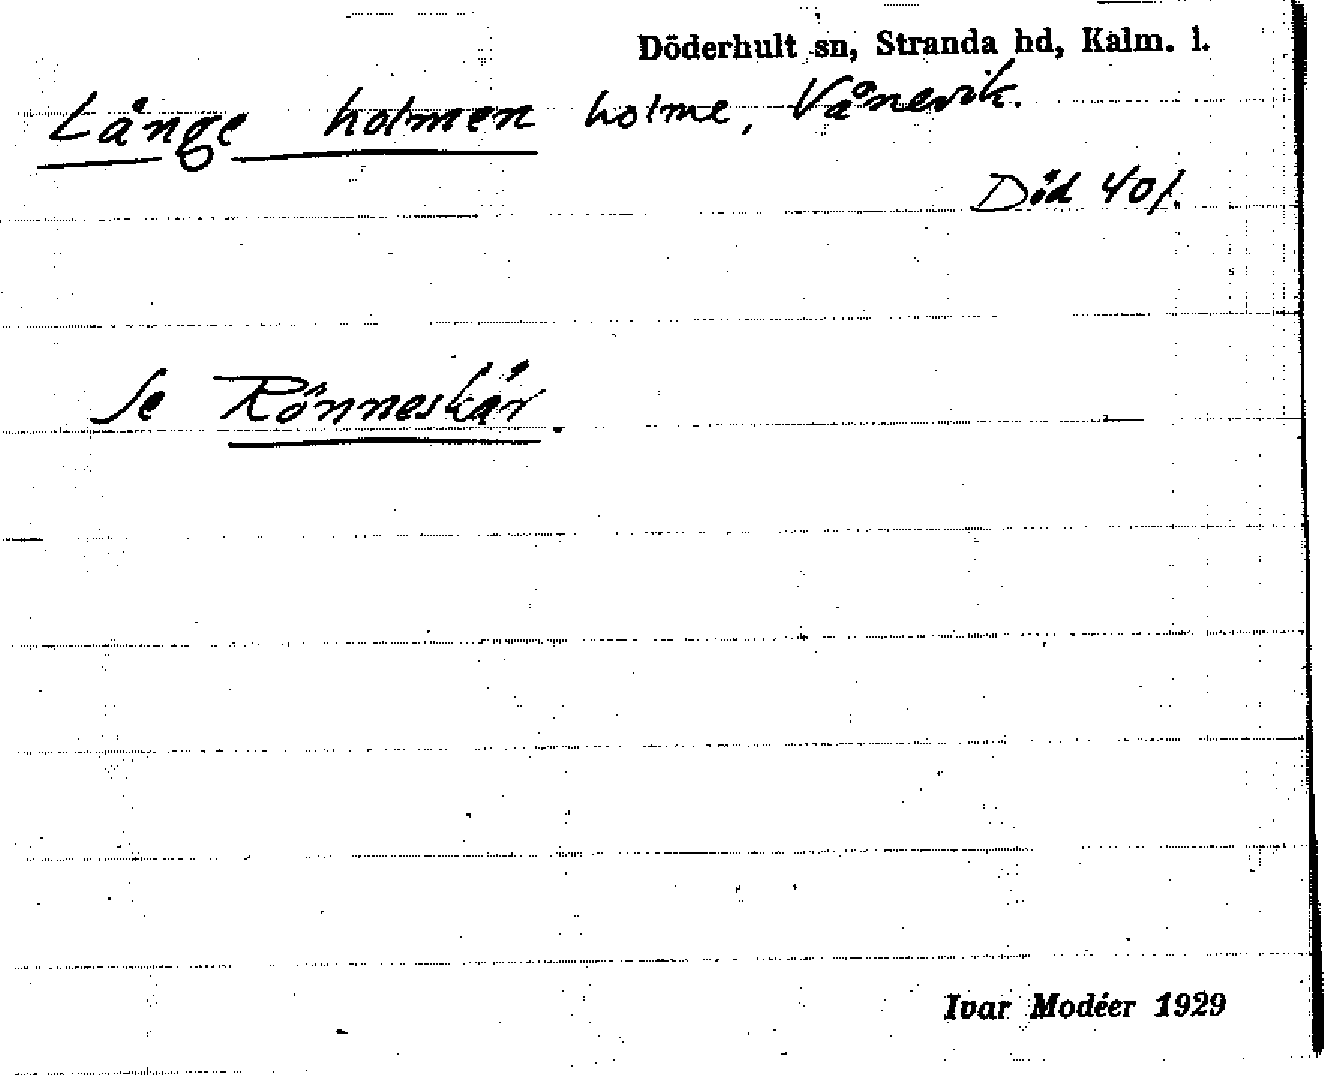 Döderhult sn, Stranda hd, Kalm. l.
Långe holmen holme, Vånevik.
Död 40/.
se Rönneskär.
Ivar Modéer 1929